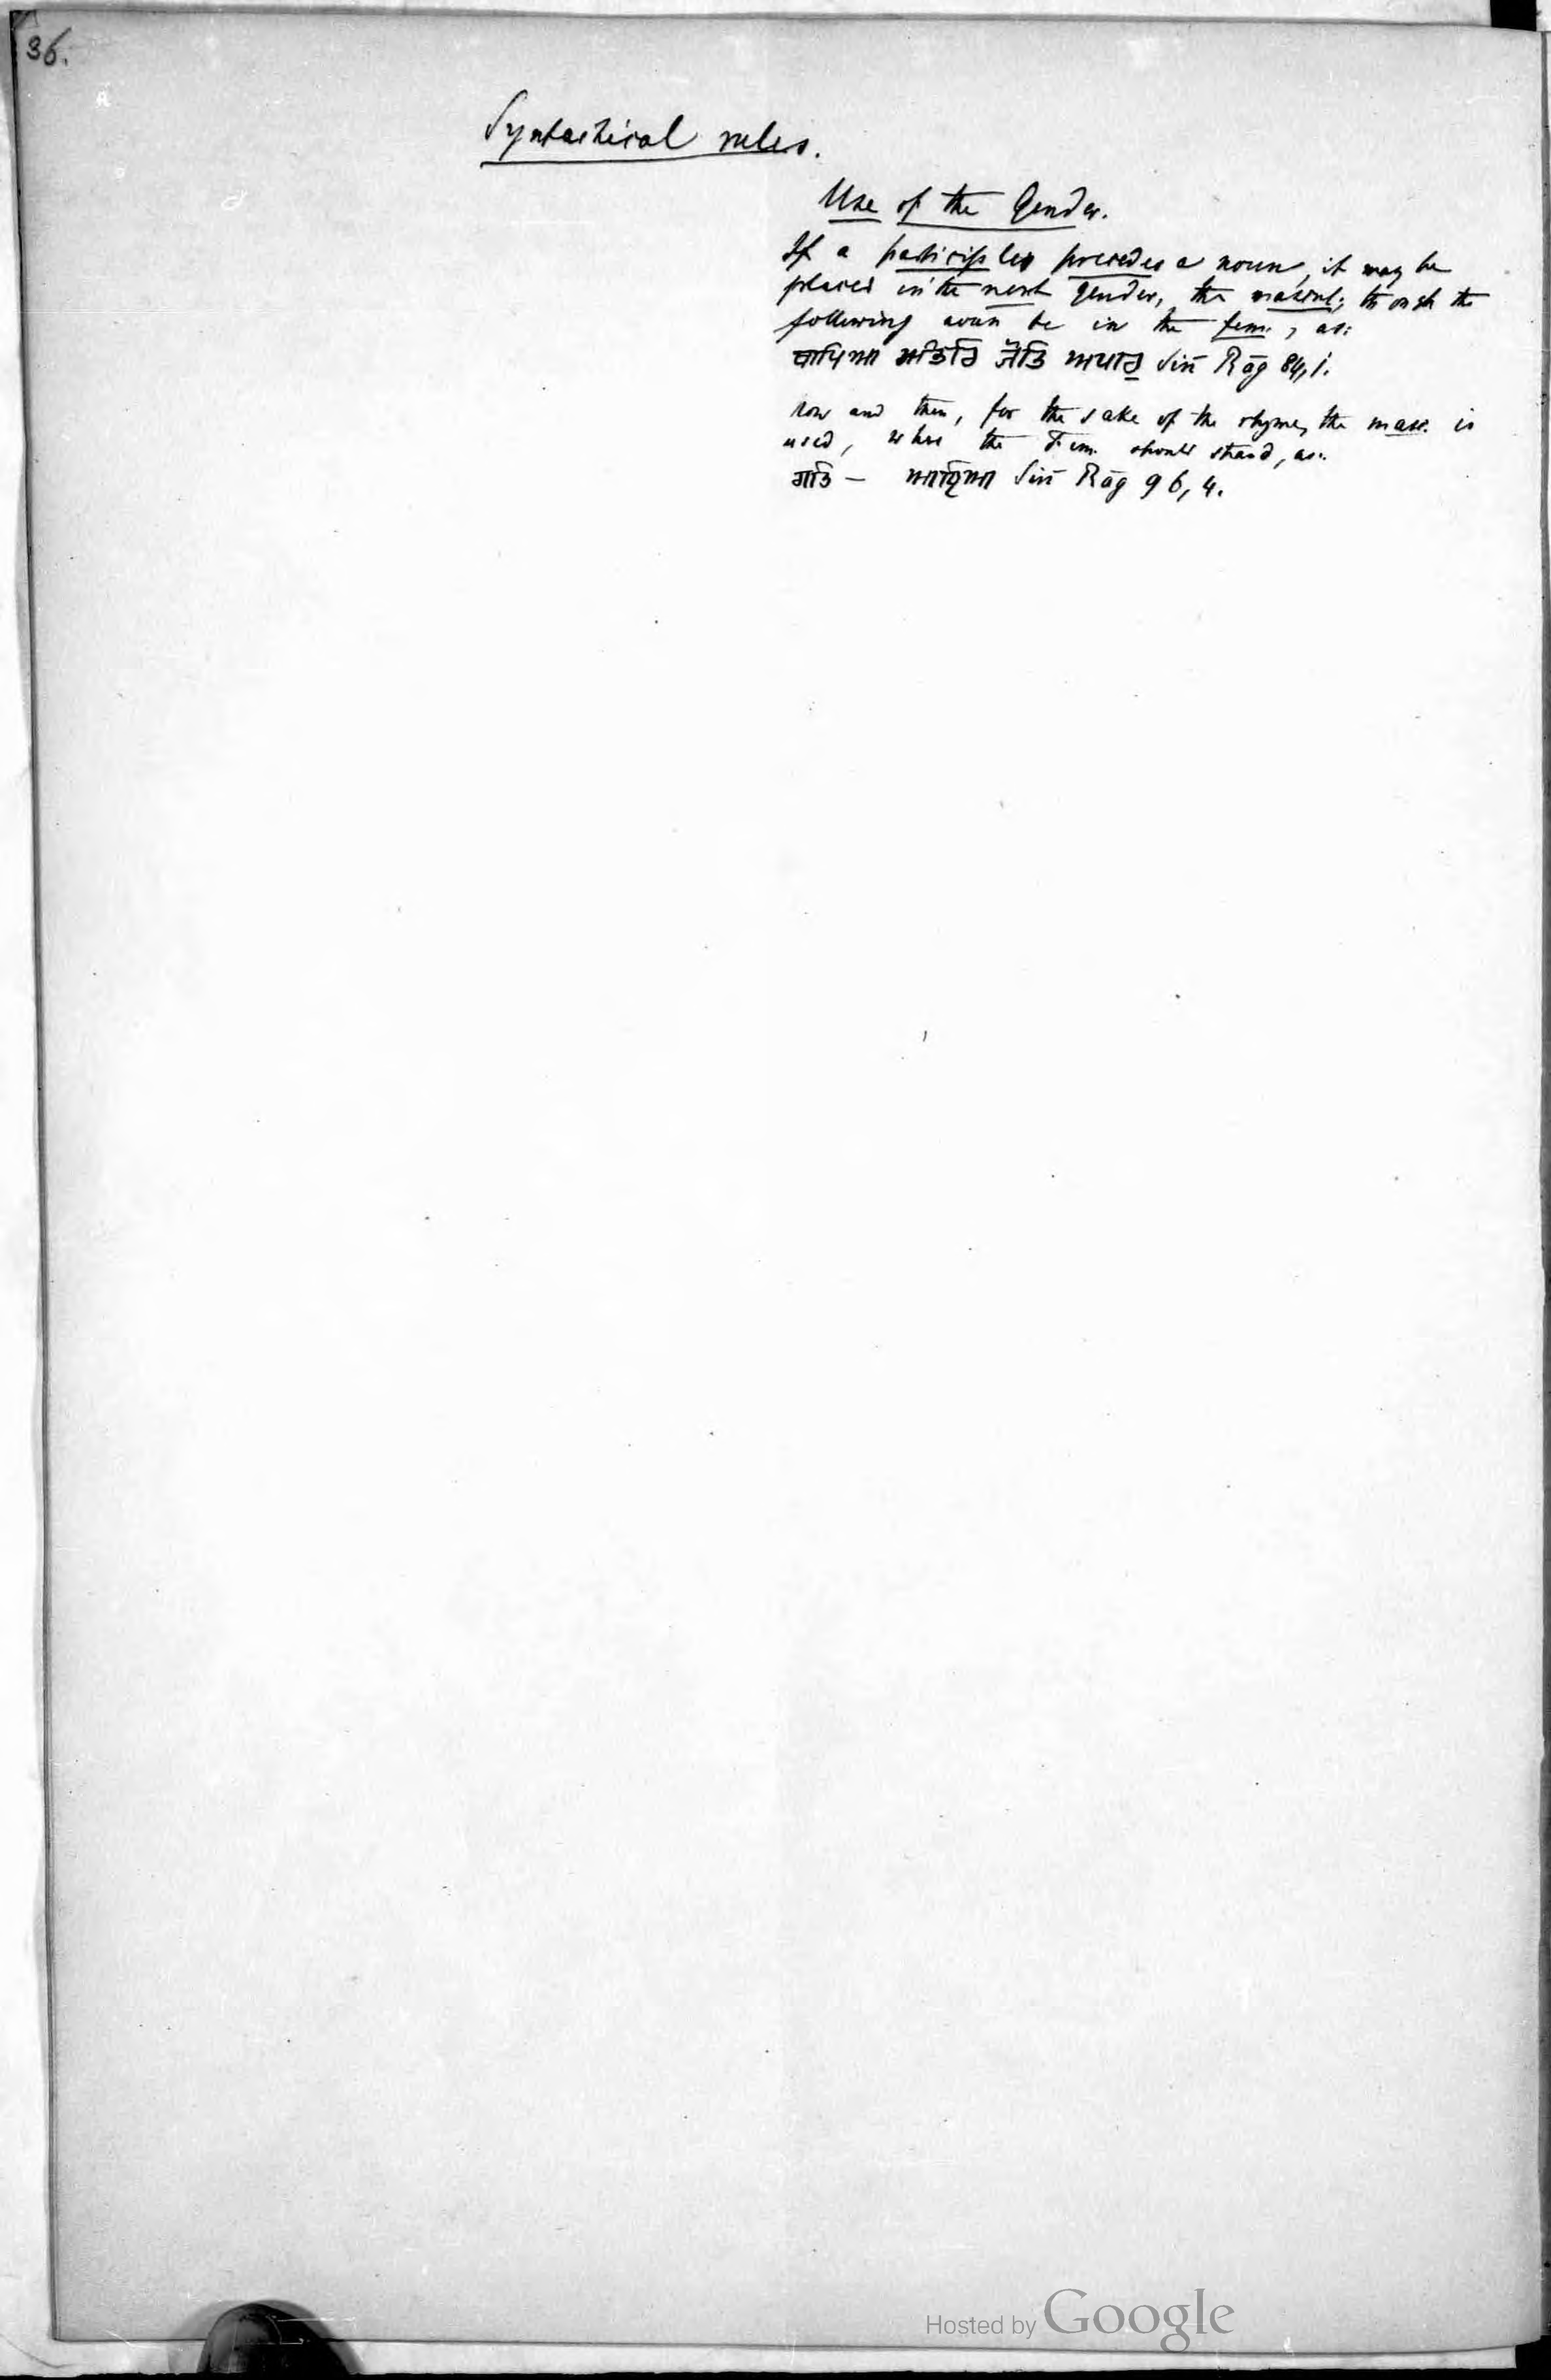 36.
Syntactical rules.
Use of the Gender.
If a participles precedes a noun, it may be
placed in the next gender, the mascul; though the
following noun be in the fem., as:
ਅੰਤਰਿ ਜੋਤਿ ਅਪਾਰੁ Siri Rāg 84,1.
now and then, for the sake of the rhyme, the masc. is
used, where the Fem. should stand, as:
ਗਤਿ — Siri Rāg 96, 4.
Hosted by Google